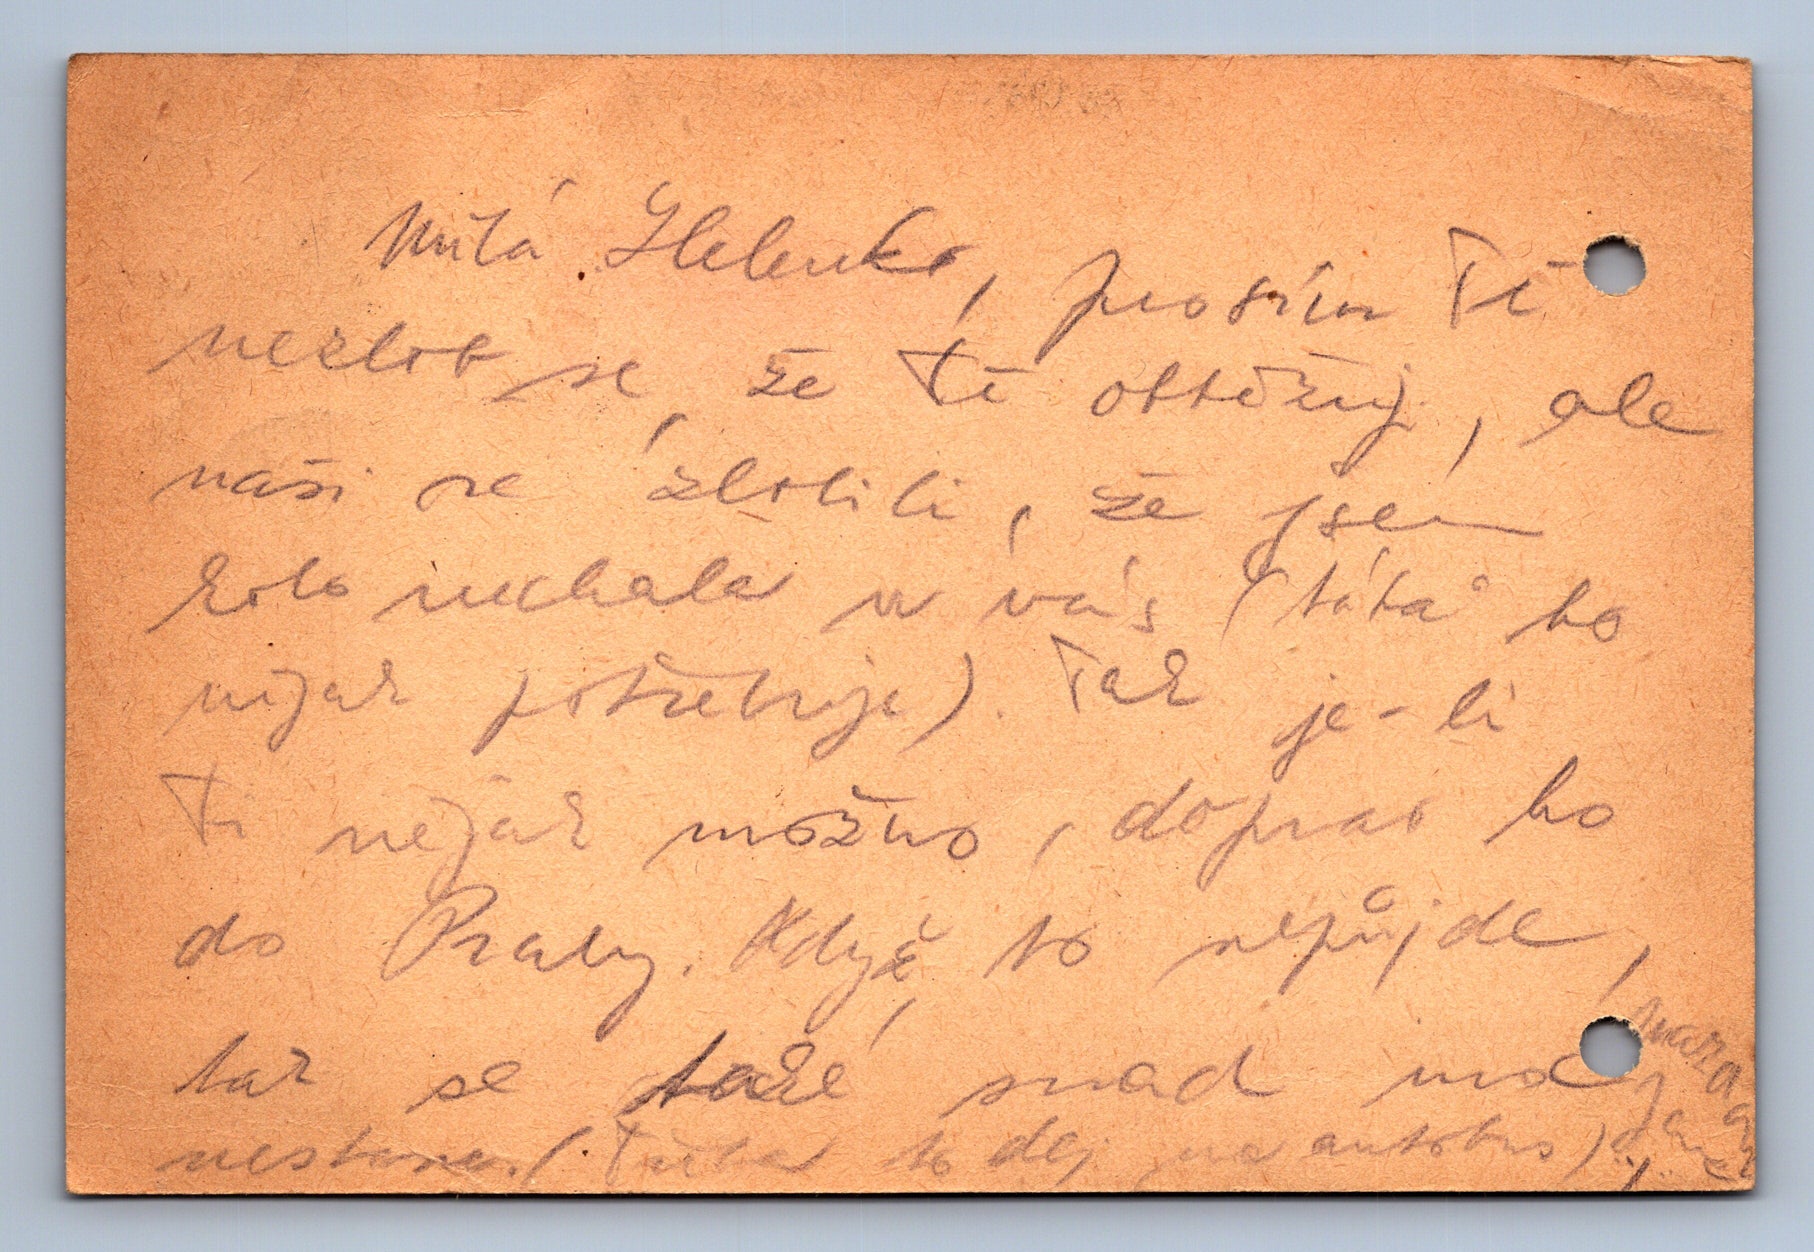 Milá Helenko, prosím Tě
nezlob se, že Tě obtěžuji, ale
naši se zlobili, že jsem
kolo nechala u vás (táta ho
nějak potřebuje). Tak je-li
Ti nějak možno, doprav ho
do Prahy. Když to nepůjde,
tak se také snad nic
nestane. (Třeba to dej na autobus)